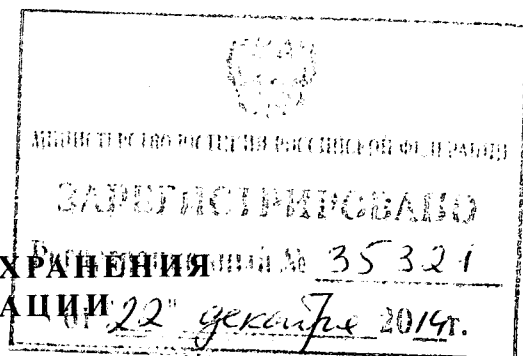 МИНИСТЕРСТВО ЮСТИЦИИ РОССИЙСКОЙ ФЕДЕРАЦИИ
ЗАРЕГИСТРИРОВАНО
Регистрационный № 35321
ХРАНЕНИЯ
от "22" декабря 2014г.
АЦИИ